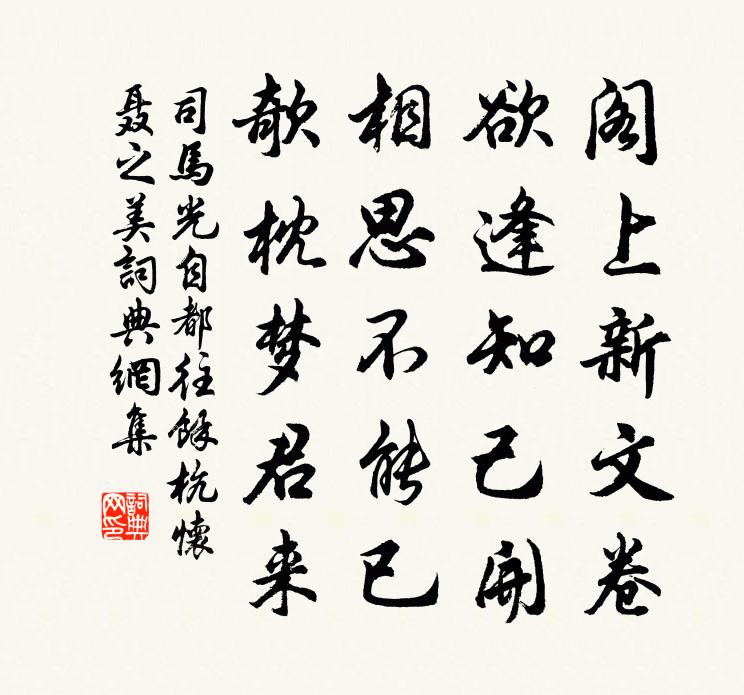 阁上新文卷
欲逢知己開
相思不能已
欹枕梦君来
司馬光自都往餘杭懷
聂之美詞典網集
詞典网印